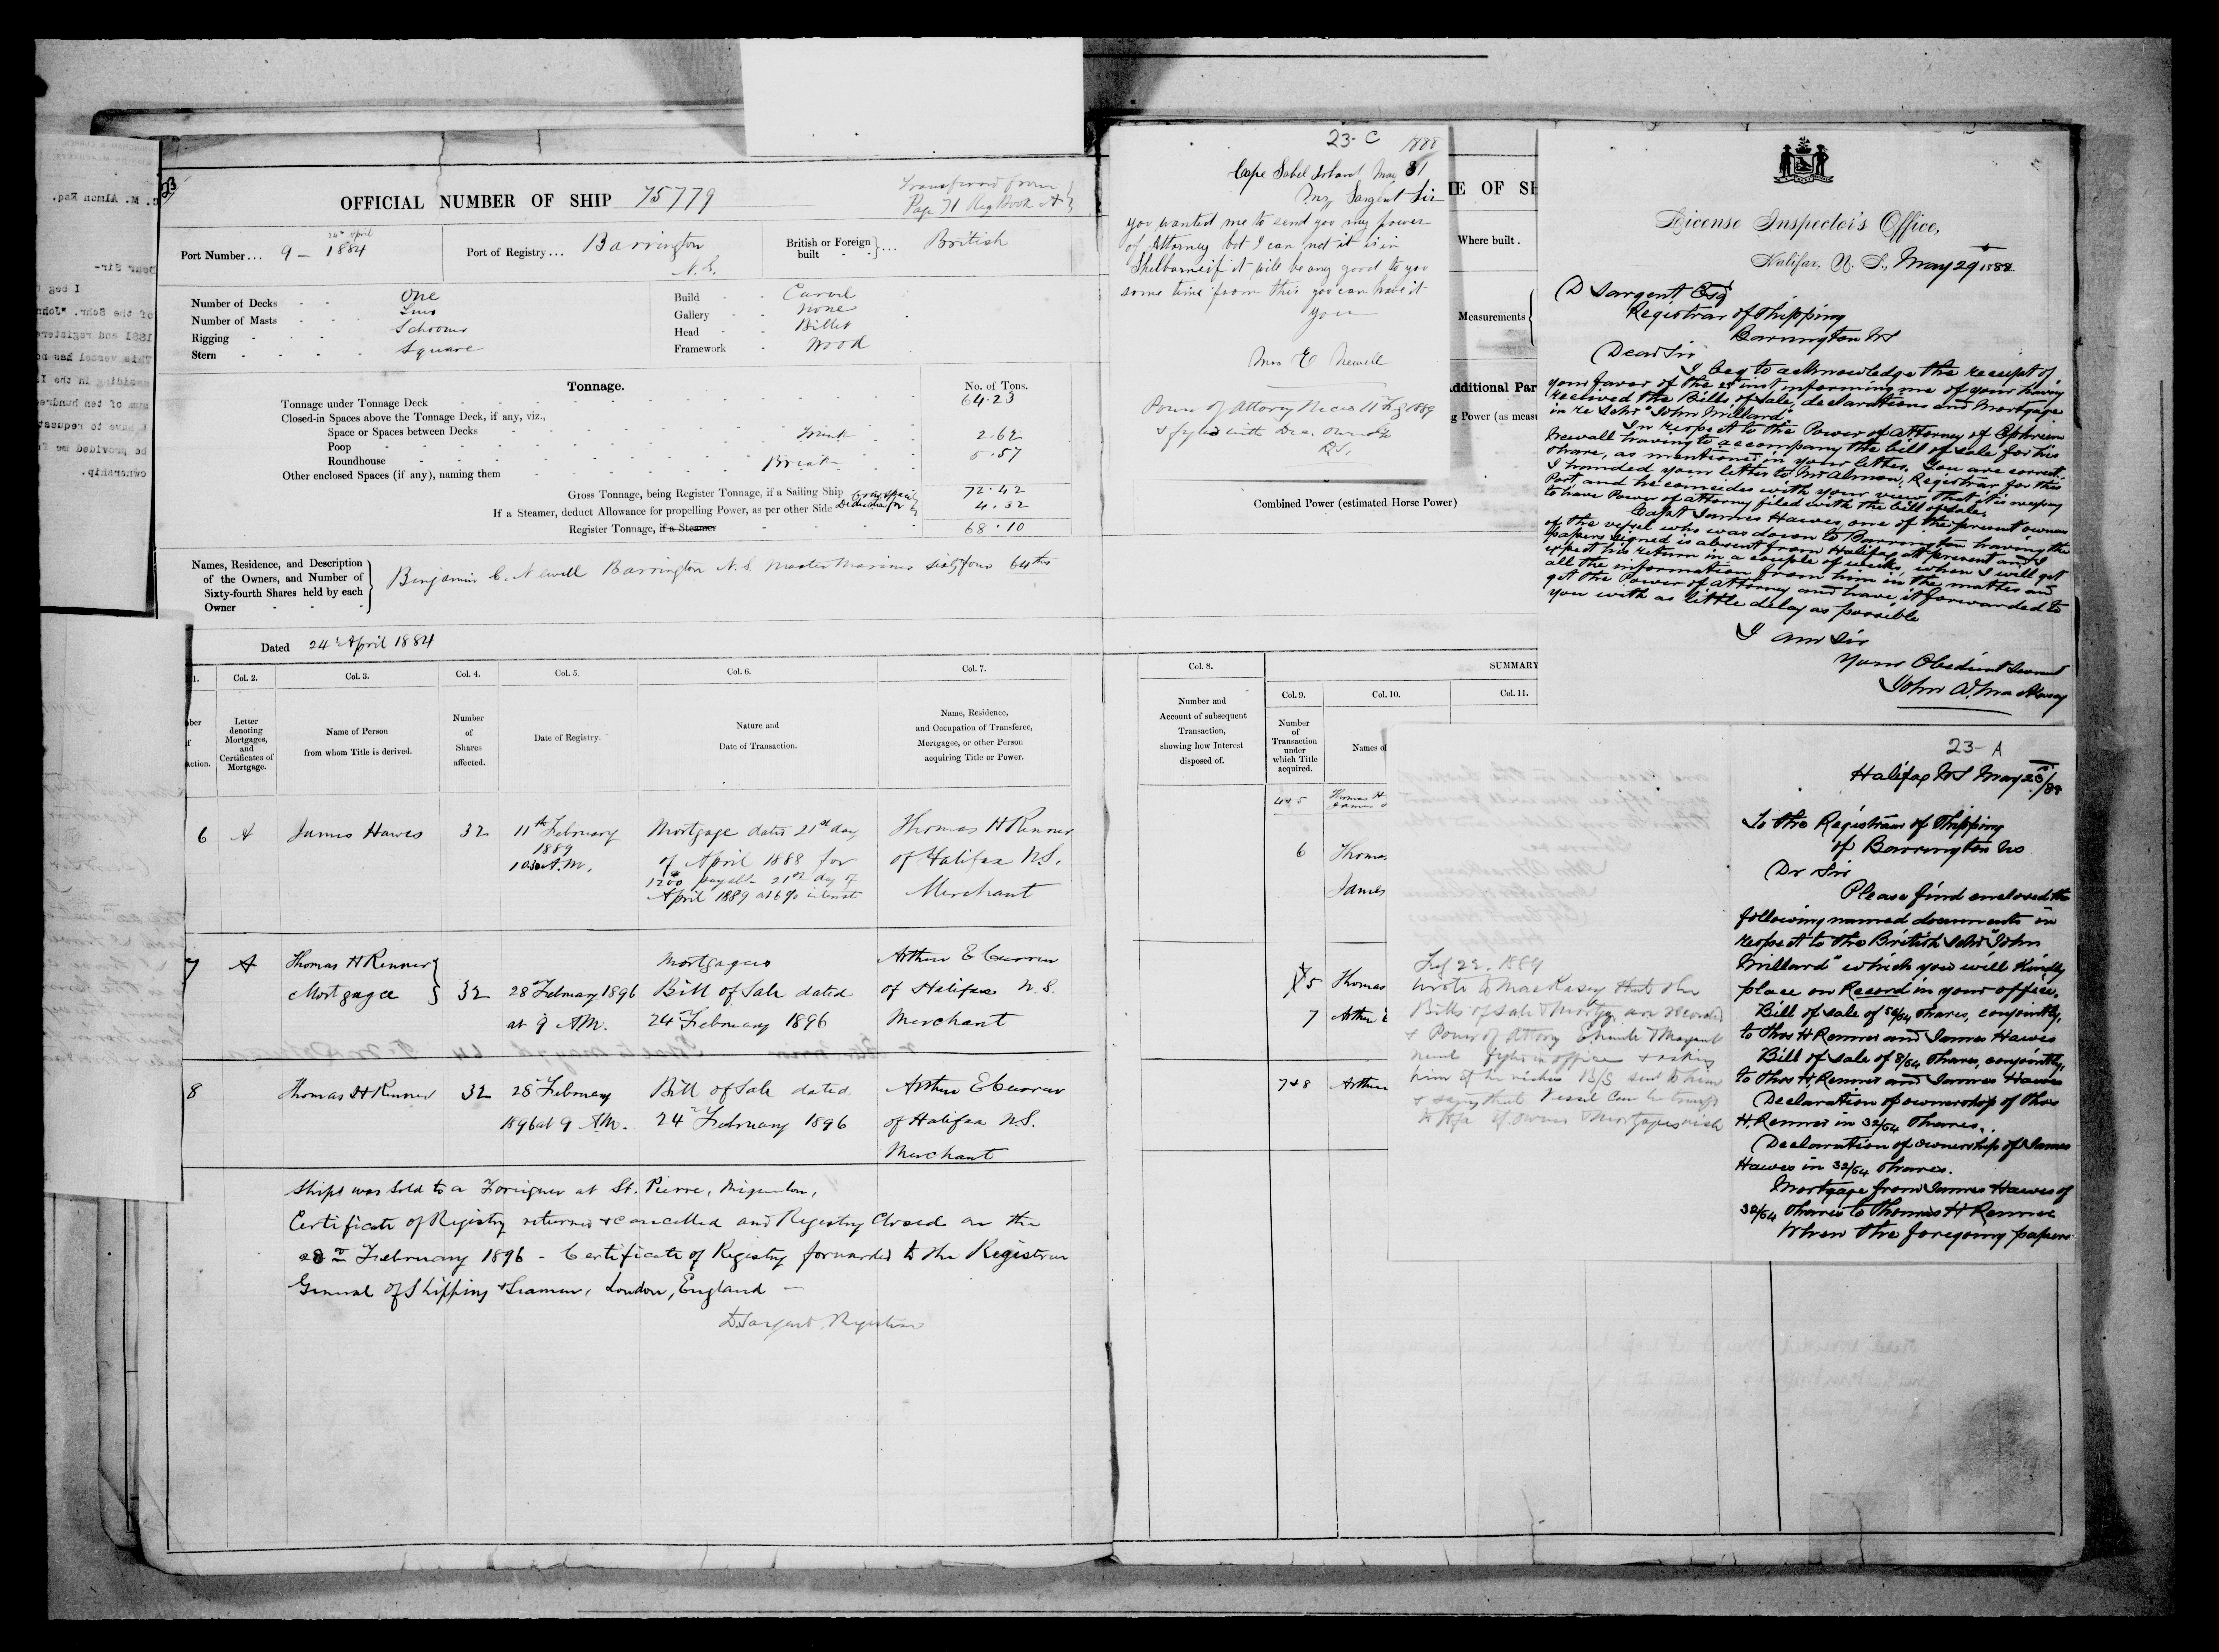 23
OFFICIAL NUMBER OF SHIP 75779
Transferred from
Page 71 Reg Book A
Port Number... 9 — 24th April 1884
Port of Registry... Barrington N.S.
British or Foreign built ... British
Number of Decks One
Number of Masts Two
Rigging Schooner
Stern Square
Build Carvel
Gallery None
Head Billet
Framework Wood
Tonnage.
No. of Tons.
Tonnage under Tonnage Deck 64.23
Closed-in Spaces above the Tonnage Deck, if any, viz.,
Space or Spaces between Decks Trunk 2.62
Poop 5.57
Roundhouse Break
Other enclosed Spaces (if any), naming them
Gross Tonnage, being Register Tonnage, if a Sailing Ship 72.42
If a Steamer, deduct Allowance for propelling Power, as per other Side Deduction for 4.32
Register Tonnage, if a Steamer 68.10
Names, Residence, and Description
of the Owners, and Number of
Sixty-fourth Shares held by each
Owner
Benjamin C. Newell Barrington N.S. Master Mariner Sixty four 64ths
Dated 24th April 1884
1. Col. 2. Col. 3. Col. 4. Col. 5. Col. 6. Col. 7.
Letter denoting Mortgages, and Certificates of Mortgage.
Name of Person from whom Title is derived.
Number of Shares affected.
Date of Registry.
Nature and Date of Transaction.
Name, Residence, and Occupation of Transferee, Mortgagee, or other Person acquiring Title or Power.
6 A James Hawes 32 11th February 1889 10.30 A.M. Mortgage dated 21st day of April 1888 for 1200 payable 21st day of April 1889 at 6% interest Thomas H Renner of Halifax N.S. Merchant
7 A Thomas H Renner Mortgagee 32 28th February 1896 at 9 A.M. Mortgagees Bill of Sale dated 24th February 1896 Arthur E Curren of Halifax N.S. Merchant
8 Thomas H Renner 32 28th February 1896 at 9 A.M. Bill of Sale dated 24th February 1896 Arthur E Curren of Halifax N.S. Merchant
Ships was Sold to a Foreigner at St. Pierre, Miquelon,
Certificate of Registry returned & cancelled and Registry Closed on the
28th February 1896 - Certificate of Registry forwarded to the Registrar
General of Shipping & Seamen, London, England —
D. Sargent Registrar
23-C
1888
Cape Sabel Island May 31
Mr Sargent Sir
you wanted me to send you my power
of Attorney but I can not it is in
Shelburne if it will be any good to you
some time from this you can have it
you
Mrs E Newell
Power of Attorney Received 11 Feby 1889
& fyled with Dec. Ownership
D.S.
Where built .
Measurements
Additional Par
Combined Power (estimated Horse Power)
Col. 8.
Number and
Account of subsequent
Transaction,
showing how Interest
disposed of.
SUMMARY
Col. 9. Col. 10. Col. 11.
Number
of
Transaction
under
which Title
acquired.
Names of
4&5 Thomas H
James
6 Thomas
James
5 Thomas
7 Arthur E
7&8 Arthur
License Inspector's Office,
Halifax, N. S., May 29th 1888
D Sargent Esq
Registrar of Shipping
Barrington NS
Dear Sir
I beg to acknowledge the receipt of
your favor of the 25th inst informing me of your having
received the Bills of Sale, declarations and Mortgage
in re Schr "John Millard"
In respect to the Power of Attorney of Ephriem
Newall having to accompany the bill of sale for his
share, as mentioned in your letter, You are correct.
I handed your letter to Mr Almon, Registrar for this
Port and he coincides with your view that it is necessary
to have Power of attorney filed with the bill of sale.
Capt James Hawes, one of the present owners
of the vessel who was down to Barrington having the
papers signed is absent from Halifax at present and I
expect his return in a couple of weeks, when I will get
all the information from him in the matter and
get the Power of Attorney and have it forwarded to
you with as little delay as possible
I am Sir
Your Obedient Servant
John A. MacKasey
23-A
Halifax NS May 23/88
To the Registrar of Shipping
of Barrington NS
Dr Sir
Please find enclosed the
following named documents in
respect to the British Schr "John
Millard" which you will kindly
place on Record in your office.
Bill of sale of 56/64 Shares, conjointly,
to Thos H Renner and James Hawes
Bill of sale of 8/64 Shares, conjointly,
to Thos H. Renner and James Hawes
Declaration of ownership of Thos
H. Renner in 32/64 Shares.
Declaration of ownership of James
Hawes in 32/64 Shares.
Mortgage from James Hawes of
32/64 Shares to Thomas H Renner
When the foregoing papers
Feby 22. 1889
Wrote to MacKasey that the
Bills of Sale & Mortgage are recorded
& Power of Attory
fyled in office & asking
him if he wishes B/S sent to him
& saying that Vessel can be transfd
to Hfx if owners & Mortgagees wish